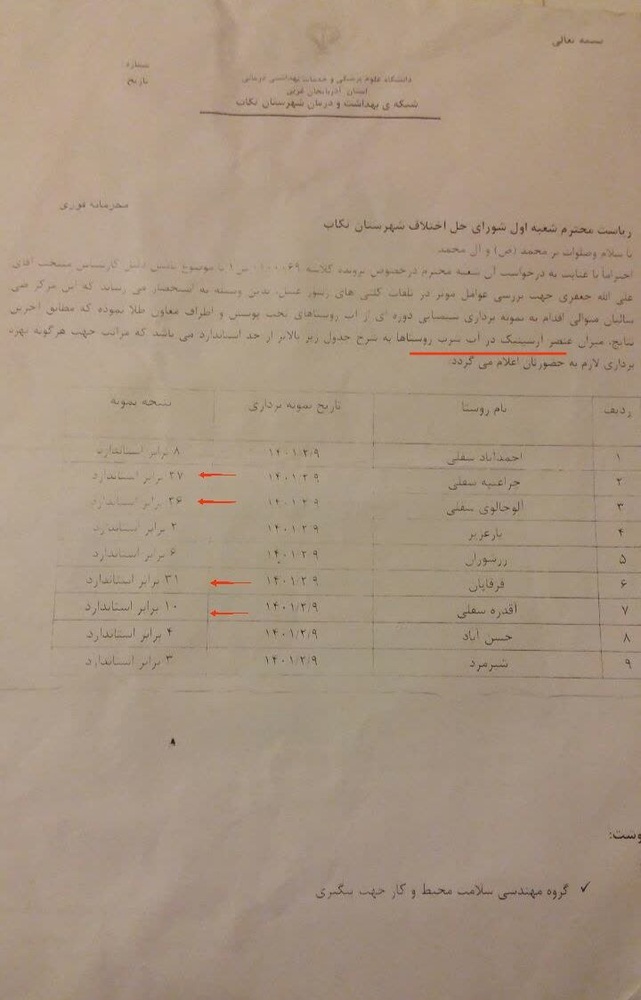 بسمه تعالی
شماره
تاریخ
دانشگاه علوم پزشکی و خدمات بهداشتی درمانی
استان آذربایجان غربی
شبکه ی بهداشت و درمان شهرستان تکاب
محرمانه فوری
ریاست محترم شعبه اول شورای حل اختلاف شهرستان تکاب
با سلام وصلوات بر محمد (ص) و آل محمد
احتراما با عنایت به درخواست آن شعبه محترم درخصوص پرونده کلاسه با موضوع کارشناس منتخب آقای
علی الله جعفری جهت بررسی عوامل موثر در تلفات کلنی های زنبور عسل، بدین وسیله به استحضار می رساند که این مرکز طی
سالیان متوالی اقدام به نمونه برداری شیمیایی دوره ای از آب روستاهای تحت پوشش و اطراف معادن طلا نموده که مطابق آخرین
نتایج، میزان عنصر آرسینیک در آب شرب روستاها به شرح جدول زیر بالاتر از حد استاندارد می باشد که مراتب جهت هرگونه بهره
برداری لازم به حضورتان اعلام می گردد.
ردیف نام روستا تاریخ نمونه برداری نتیجه نمونه
۱ احمدآباد سفلی ۱۴۰۱/۲/۹ ۸ برابر استاندارد
۲ چراغتپه سفلی ۱۴۰۱/۲/۹ ۲۷ برابر استاندارد
۳ آلوچالوی سفلی ۱۴۰۱/۲/۹ ۲۶ برابر استاندارد
۴ یارعزیز ۱۴۰۱/۲/۹ ۲ برابر استاندارد
۵ زرشوران ۱۴۰۱/۲/۹ ۶ برابر استاندارد
۶ قزقاپان ۱۴۰۱/۲/۹ ۳۱ برابر استاندارد
۷ آقدره سفلی ۱۴۰۱/۲/۹ ۱۰ برابر استاندارد
۸ حسن آباد ۱۴۰۱/۲/۹ ۴ برابر استاندارد
۹ شیرمرد ۱۴۰۱/۲/۹ ۳ برابر استاندارد
وشت:
✓ گروه مهندسی سلامت محیط و کار جهت پیگیری